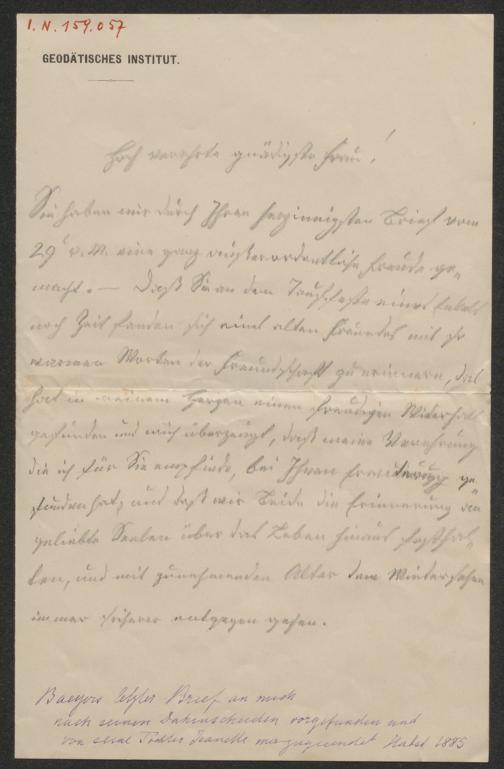 I. N. 159.057
GEODÄTISCHES INSTITUT.
Hoch verehrte gnädigste Frau!
Sie haben mir durch Ihren Brief vom
29t v. M. eine ganz außerordentliche Freude ge-
macht. — Daß Sie an dem Tauffeste eines Enkels
noch Zeit fanden sich eines alten Freundes mit so
warmen Worten der Freundschaft zu erinnern, das
hat in meinem Herzen einen freudigen Widerhall
gefunden und mich überzeugt, daß meine Verehrung
die ich für Sie empfinde, bei Ihnen Erwiderung ge-
funden hat, und daß wir Beide die Erinnerung an
geliebte Seelen über das Leben hinaus festhal-
ten, und mit zunehmenden Alter dem Wiedersehen
immer sicherer entgegen gehen.
Baeyers letzter Brief an mich
nach seinem Dahinscheiden vorgefunden und
von seiner Tochter Jeanette mir zugesendet 1885